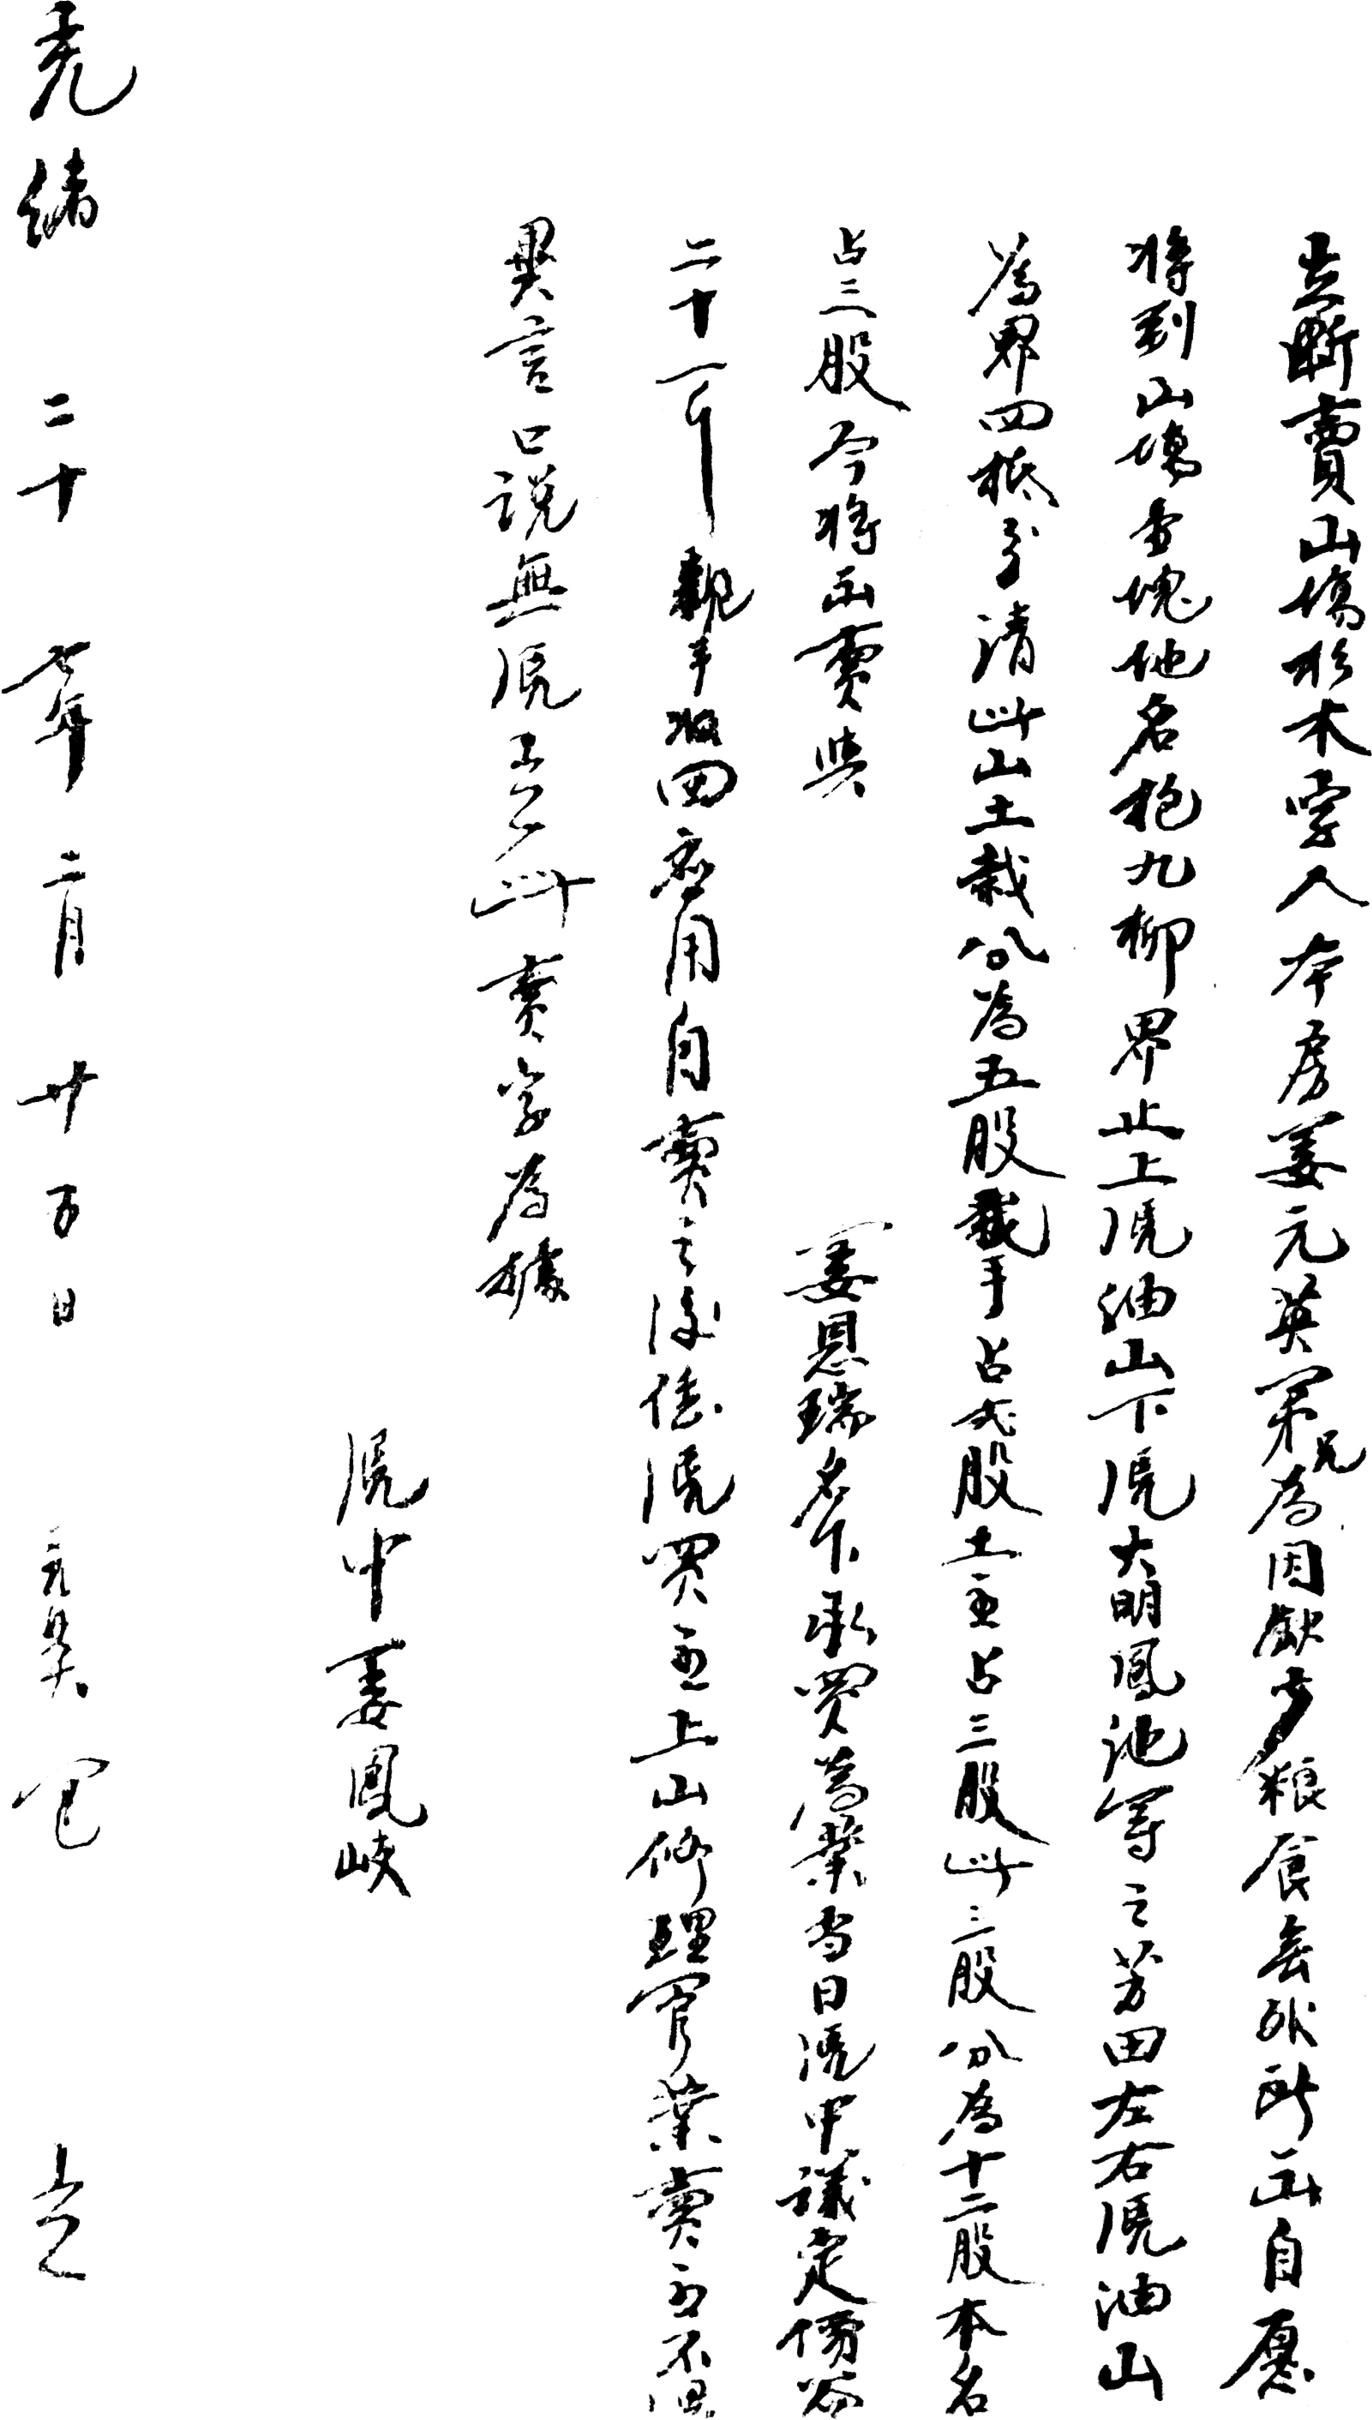 立斷賣山塲杉木字人本房姜元英弟兄為因缺少粮食無処所出自愿
將到山塲壹塊地名抱九柳界止上凴油山下凴大明鳳池等之芳田左右凴油山
為界四抵分清此山土栽分為五股栽手占弍股土主占三股此三股分為十二股本名
占三股今將出賣與　　　姜恩瑞名下承買為業當日凴中議定價谷
二十一斤親手收回應用自賣之後任凴買主上山修理管業賣主不得
異言口説無凴立此賣字為據
凴中姜鳳岐
光緒二十七年二月廿五日　元英笔　立